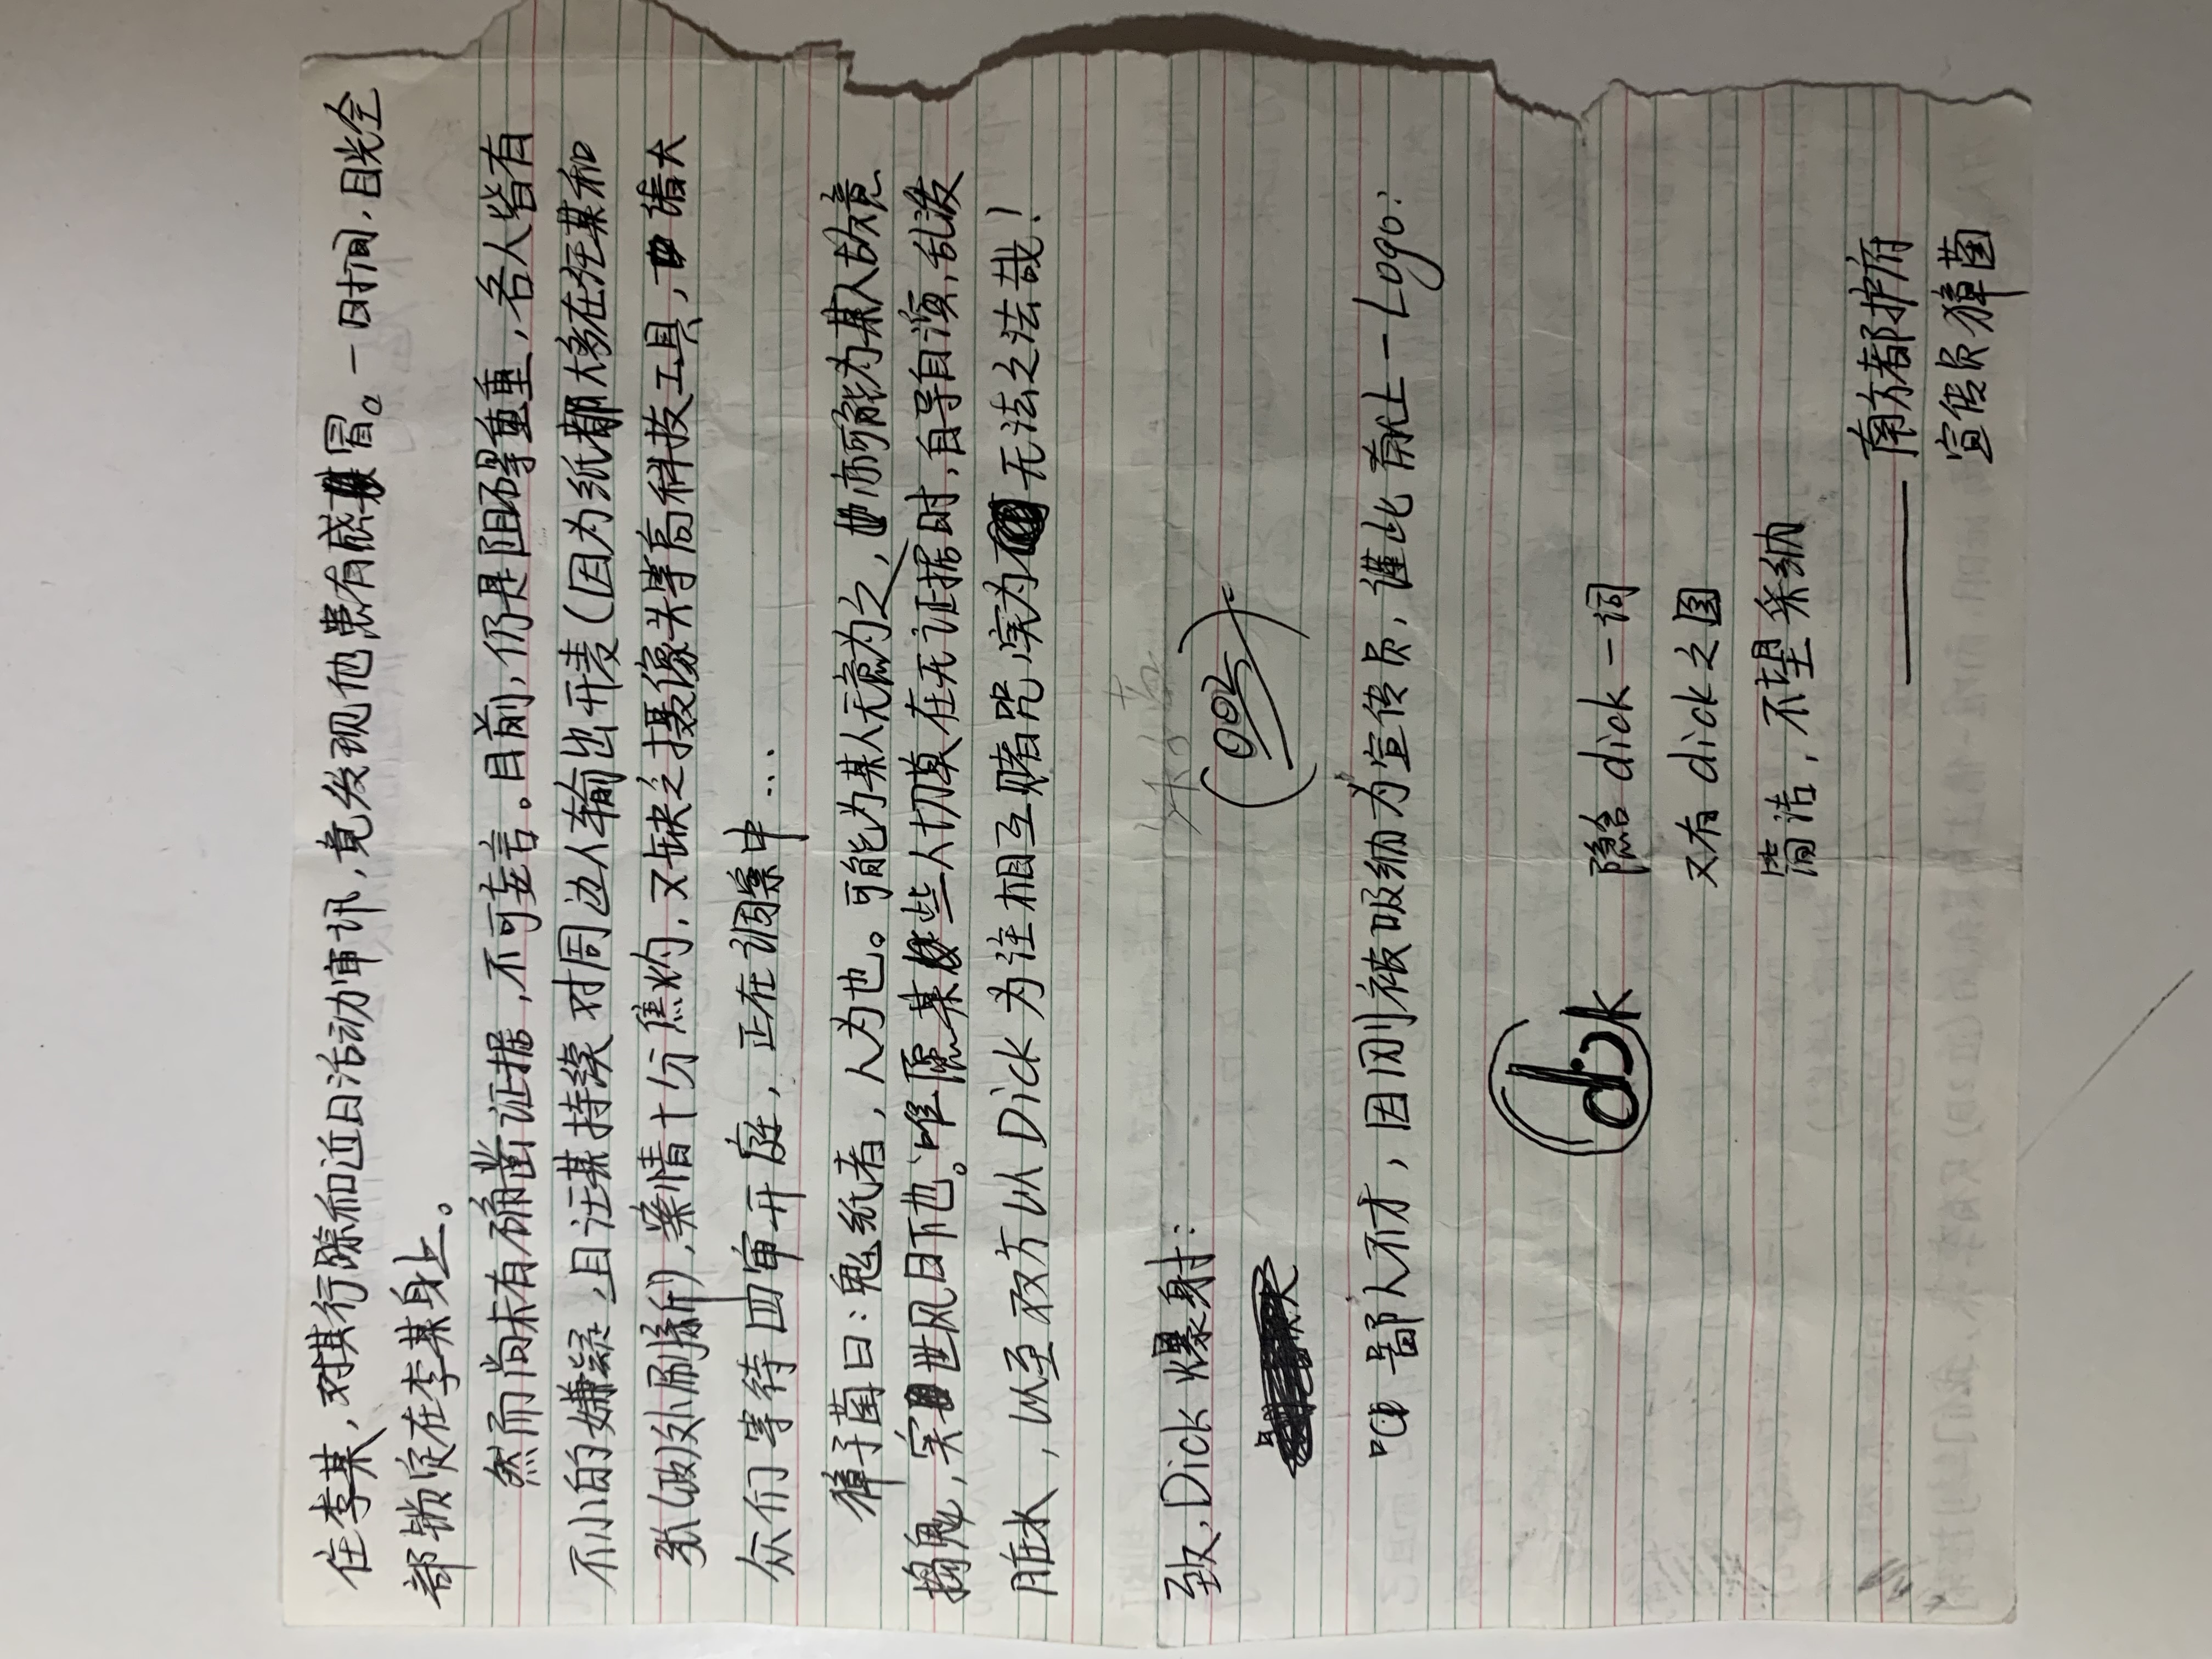 住李某，对其行踪和近日活动审讯，竟发现他患有感冒。一时间，目光全
部锁定在李某身上。
然而尚未有确凿证据，不可妄言。目前，仍是阻碍重重，各人皆有
不小的嫌疑，且汪某持续对周边人输出开麦（因为纸都大多在汪某和
张（政）处刷新），案情十分焦灼，又缺乏摄像头等高科技工具，请大
众们等待四审开庭，正在调案中...
獐子菌曰：鬼纸者，人为也。可能为某人无意为之，亦可能为某人故意
捣鬼，实世风日下也。唯愿某些人切莫在无证据时，自导自演，乱泼
脏水，以至双方以Dick为注相互赌咒，实为无法之法哉！
致，Dick爆射：
（002）
鄙人不才，因刚被吸纳为宣传员，谨此献上一Logo：
dick
隐含dick一词
又有dick之图
简洁，不望采纳
——南方都护府
宣传员獐菌